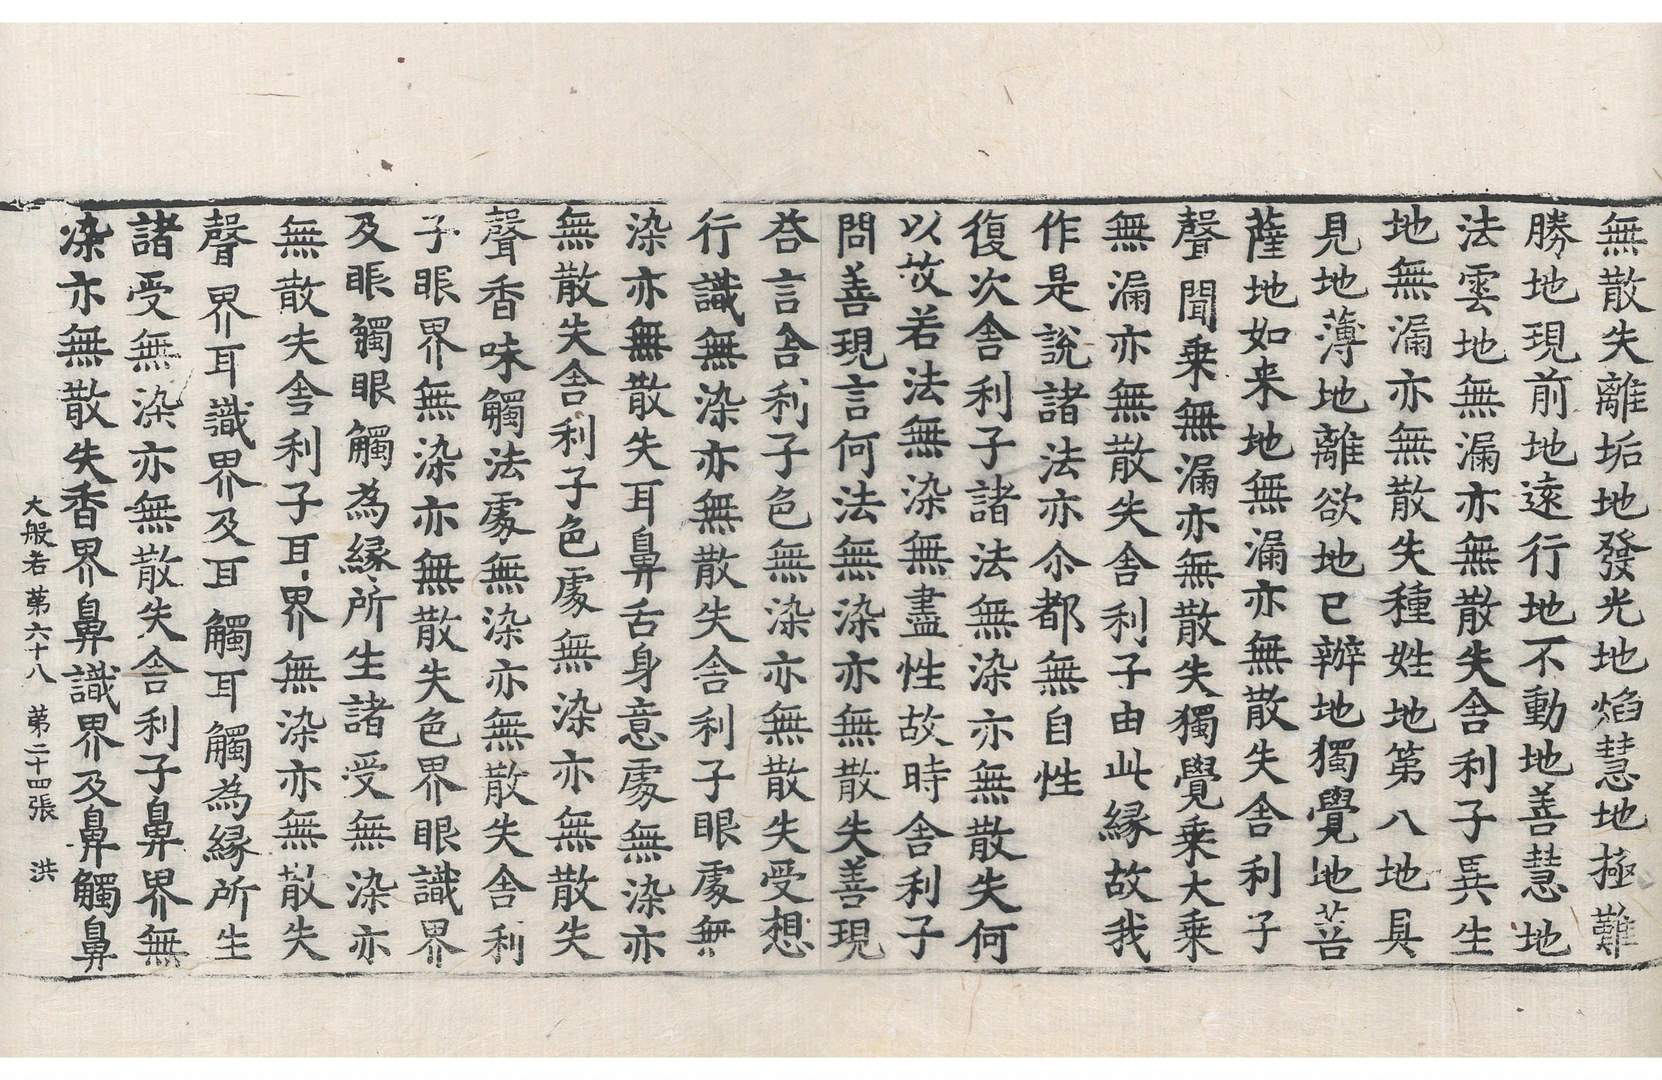 無散失離垢地發光地焰慧地極難
勝地現前地遠行地不動地善慧地
法雲地無漏亦無散失舍利子異生
地無漏亦無散失種姓地第八地具
見地薄地離欲地已辦地獨覺地菩
薩地如来地無漏亦無散失舍利子
聲聞乗無漏亦無散失獨覺乗大乗
無漏亦無散失舍利子由此縁故我
作是說諸法亦尒都無自性
復次舍利子諸法無染亦無散失何
以故若法無染無盡性故時舍利子
問善現言何法無染亦無散失善現
荅言舍利子色無染亦無散失受想
行識無染亦無散失舍利子眼處無
染亦無散失耳鼻舌身意處無染亦
無散失舍利子色處無染亦無散失
聲香味觸法處無染亦無散失舍利
子眼界無染亦無散失色界眼識界
及眼觸眼觸為縁所生諸受無染亦
無散失舍利子耳界無染亦無散失
聲界耳識界及耳觸耳觸為縁所生
諸受無染亦無散失舍利子鼻界無
染亦無散失香界鼻識界及鼻觸鼻
大般若 第六十八 第二十四張 洪